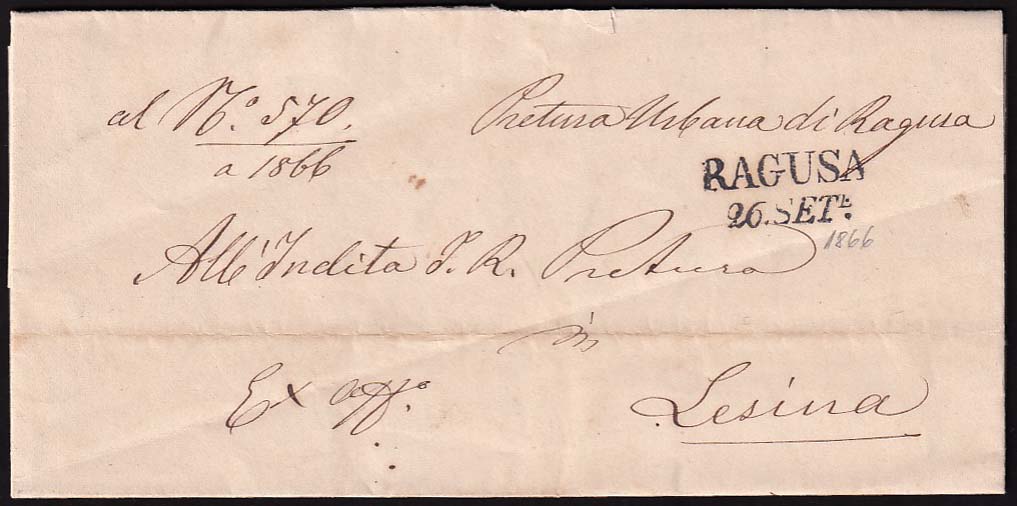 al N.o 570.
a 1866
Pretura Urbana di Ragusa
RAGUSA
26. SETE.
1866
All'Inclita I. R. Pretura
in
Lesina
Ex offo.